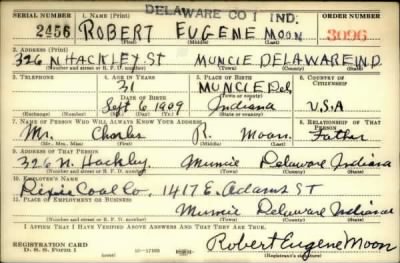 DELAWARE CO 1 IND.
SERIAL NUMBER 1. NAME (Print) ORDER NUMBER
2456 ROBERT EUGENE MOON 3096
(First) (Middle) (Last)
2. ADDRESS (Print)
326 N HACKLEY ST MUNCIE DELAWARE IND.
(Number and street or R. F. D. number) (Town) (County) (State)
3. TELEPHONE 4. AGE IN YEARS 5. PLACE OF BIRTH 6. COUNTRY OF CITIZENSHIP
31 MUNCIE Del
DATE OF BIRTH (Town or county)
Sept 6 1909 Indiana U.S.A
(Exchange) (Number) (Mo.) (Day) (Yr.) (State or country)
7. NAME OF PERSON WHO WILL ALWAYS KNOW YOUR ADDRESS 8. RELATIONSHIP OF THAT PERSON
Mr. Charles R. Moon Father
(Mr., Mrs., Miss) (First) (Middle) (Last)
9. ADDRESS OF THAT PERSON
326 N. Hackley Muncie Delaware Indiana
(Number and street or R. F. D. number) (Town) (County) (State)
10. EMPLOYER'S NAME
Dixie Coal Co. 1417 E. Adams ST
11. PLACE OF EMPLOYMENT OR BUSINESS
Muncie Delaware Indiana
(Number and street or R. F. D. number) (Town) (County) (State)
I AFFIRM THAT I HAVE VERIFIED ABOVE ANSWERS AND THAT THEY ARE TRUE.
Robert Eugene Moon
REGISTRATION CARD
D. S. S. Form 1 (Registrant's signature)